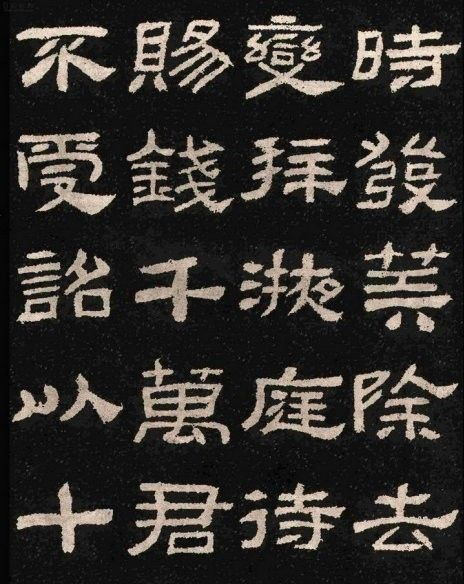 時發算除去
變拜液庭待
賜錢千萬君
不受詔以十